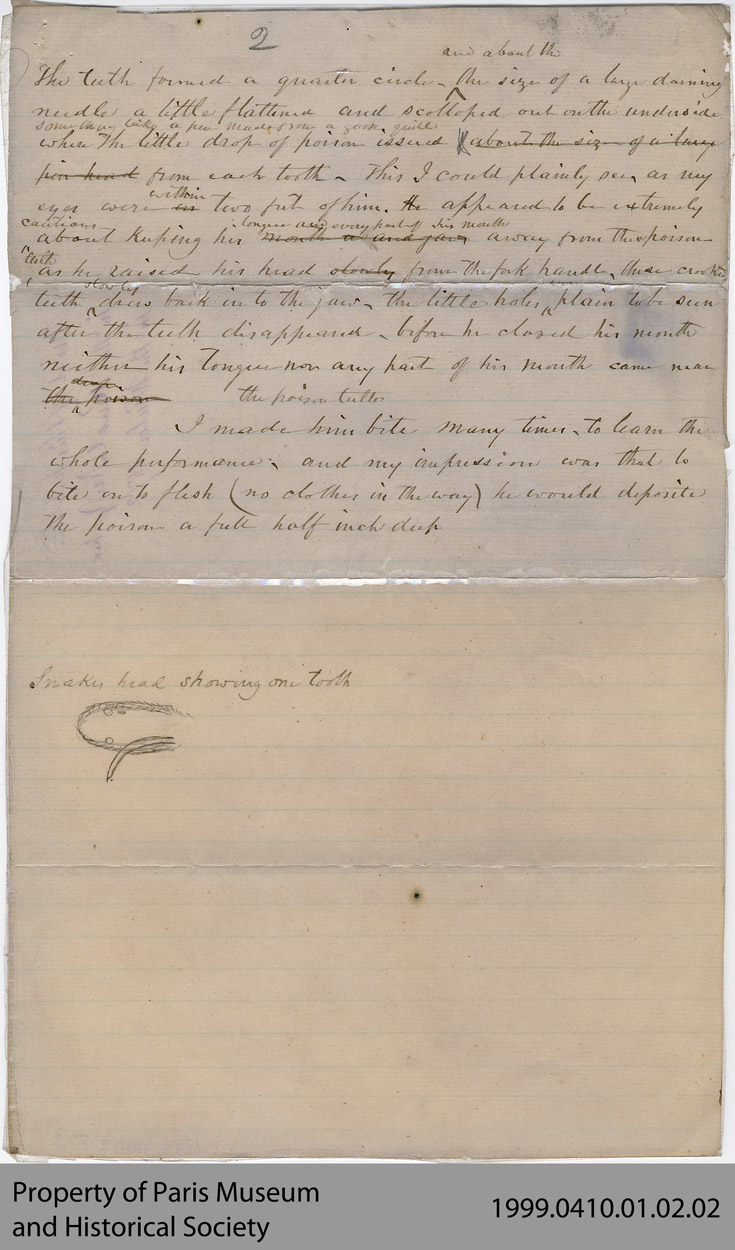 2
and about the
The teeth formed a quarter circle - the size of a large darning
needle a little flattened and scolloped out on the underside
something like a pen made from a goose quill
where the little drop of poison issued about the size of a large
pin head from each tooth - This I could plainly see, as my
within
eyes were in two feet of him. He appeared to be extremely
cautious tongue and every part of his mouth
about Keeping his mouth and jaws away from the poison
teeth
as he raised his head slowly from the fork handle, these crooked
slowly were
teeth drew back in to the jaw - the little holes plain to be seen
after the teeth disappeared - before he closed his mouth
neither his Tongue nor any part of his mouth came near
drop
the poison the poison teeth
I made him bite many times, to learn the
whole performance - and my impression was that to
bite on to flesh (no clothes in the way) he would deposite
the poison a full half inch deep
Snakes head showing one tooth
Property of Paris Museum
and Historical Society
1999.0410.01.02.02